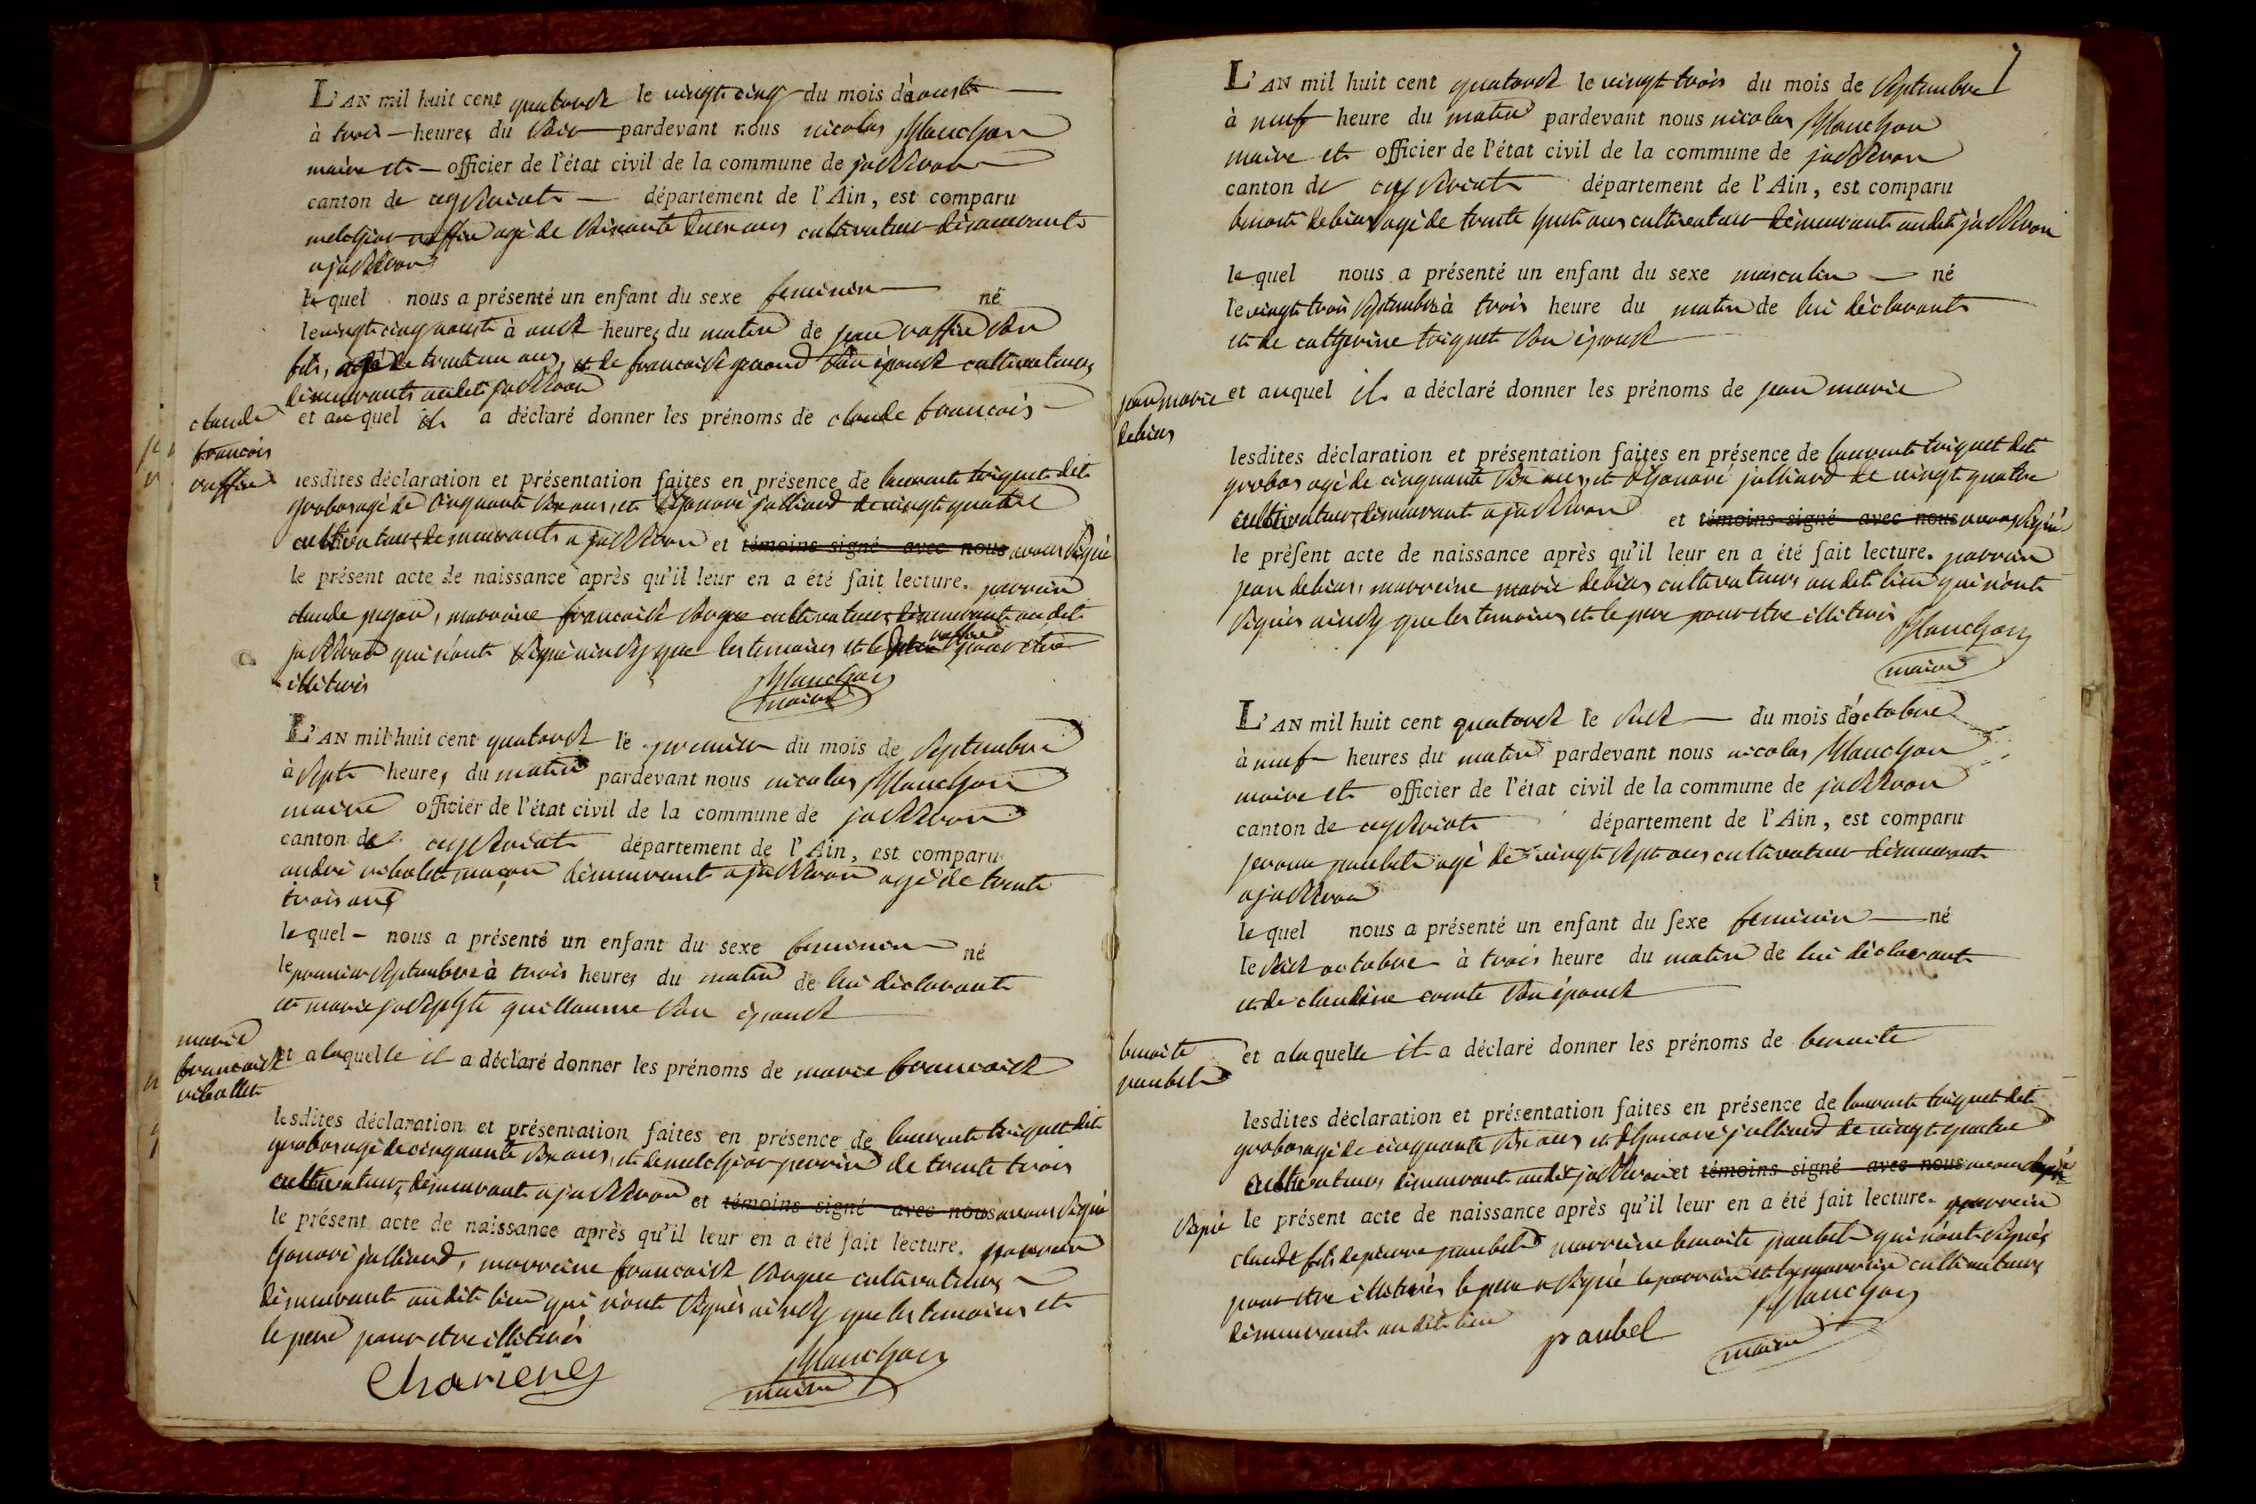 L'AN mil huit cent quatorze le vingt cinq du mois d'aoust
à trois heures du soir pardevant nous nicolas planchon
maire et officier de l'état civil de la commune de jasseron
canton de ceyseriat département de l'Ain, est comparu
melchior raffin agé de soixante deux ans cultivateur démeurant
a jasseron
le quel nous a présenté un enfant du sexe feminin né
le vingt cinq aoust à onze heures du matin de jean raffin son
fils, agé de trente un ans, et de francoise son épouse cultivateurs
démeurants audit jasseron
et au quel il a déclaré donner les prénoms de claude francois
claude
francois
raffin
lesdites déclaration et présentation faites en présence de laurent triquet dit
grobos agé de cinquante six ans, et d'honoré julliard de vingt quatre
cultivateurs demeurants a jasseron et témoins signé avec nous avons signé
le présent acte de naissance après qu'il leur en a été fait lecture. parrein
claude, marreine francoise cultivateurs démeurant au dit
jasseron qui n'ont signé ainsy que les temoins et le raffin pour etre
illitirés
planchon
maire
L'AN mil huit cent quatorze le premier du mois de septembre
à sept heures du matin pardevant nous nicolas planchon
maire officier de l'état civil de la commune de jasseron
canton de ceyseriat département de l'Ain, est comparu
andré ribollet maçon démeurant a jasseron agé de trente
trois ans
le quel nous a présenté un enfant du sexe feminin né
le premier septembre à trois heures du matin de lui déclarant
et marie josephte guillaume son épouse
et a laquelle il a déclaré donner les prénoms de marie francoise
marie
francoise
ribollet
lesdites déclaration et présentation faites en présence de laurent triquet dit
grobos agé de cinquante six ans, et de melchior perrin de trente trois
cultivateurs démeurant a jasseron et témoins signé avec nous avons signé
le présent acte de naissance après qu'il leur en a été fait lecture. parrein
honoré julliard, marreine francoise cultivateurs
démeurant audit lieu qui n'ont signés ainsy que les temoins et
le pere pour etre illitirés
planchon
maire
L'AN mil huit cent quatorze le vingt trois du mois de septembre
à neuf heure du matin pardevant nous nicolas planchon
maire et officier de l'état civil de la commune de jasseron
canton de ceyseriat département de l'Ain, est comparu
benoit debias agé de trente huit ans cultivateur démeurant audit jasseron
le quel nous a présenté un enfant du sexe masculin né
le vingt trois septembre à trois heure du matin de lui déclarant
et de catherine triquet son épouse
et auquel il a déclaré donner les prénoms de jean marie
jean marie
debias
lesdites déclaration et présentation faites en présence de laurent triquet dit
grobos agé de cinquante six ans, et d'honoré julliard de vingt quatre
cultivateurs démeurant a jasseron et témoins signé avec nous avons signé
le présent acte de naissance après qu'il leur en a été fait lecture. parrein
jean debias, marreine marie debias cultivateurs audit lieu qui n'ont
signés ainsy que les temoins et le pere pour etre illitirés
planchon
maire
L'AN mil huit cent quatorze le seize du mois d'octobre
à neuf heures du matin pardevant nous nicolas planchon
maire et officier de l'état civil de la commune de jasseron
canton de ceyseriat département de l'Ain, est comparu
paubel agé de vingt sept ans cultivateur démeurant
a jasseron
le quel nous a présenté un enfant du sexe feminin né
le seize octobre à trois heure du matin de lui déclarant
et de claudine comte son épouse
et a laquelle il a déclaré donner les prénoms de benoite
benoite
paubel
lesdites déclaration et présentation faites en présence de laurent triquet dit
grobos agé de cinquante six ans et d'honoré julliard de vingt quatre
cultivateurs démeurant audit jasseron et témoins signé avec nous avons signé
signé le présent acte de naissance après qu'il leur en a été fait lecture. parrein
claude fils de pierre paubel marreine benoite paubel qui n'ont signés
pour etre illitirés le pere a signé le parrein et la marreine cultivateurs
démeurants audit lieu
paubel
planchon
maire